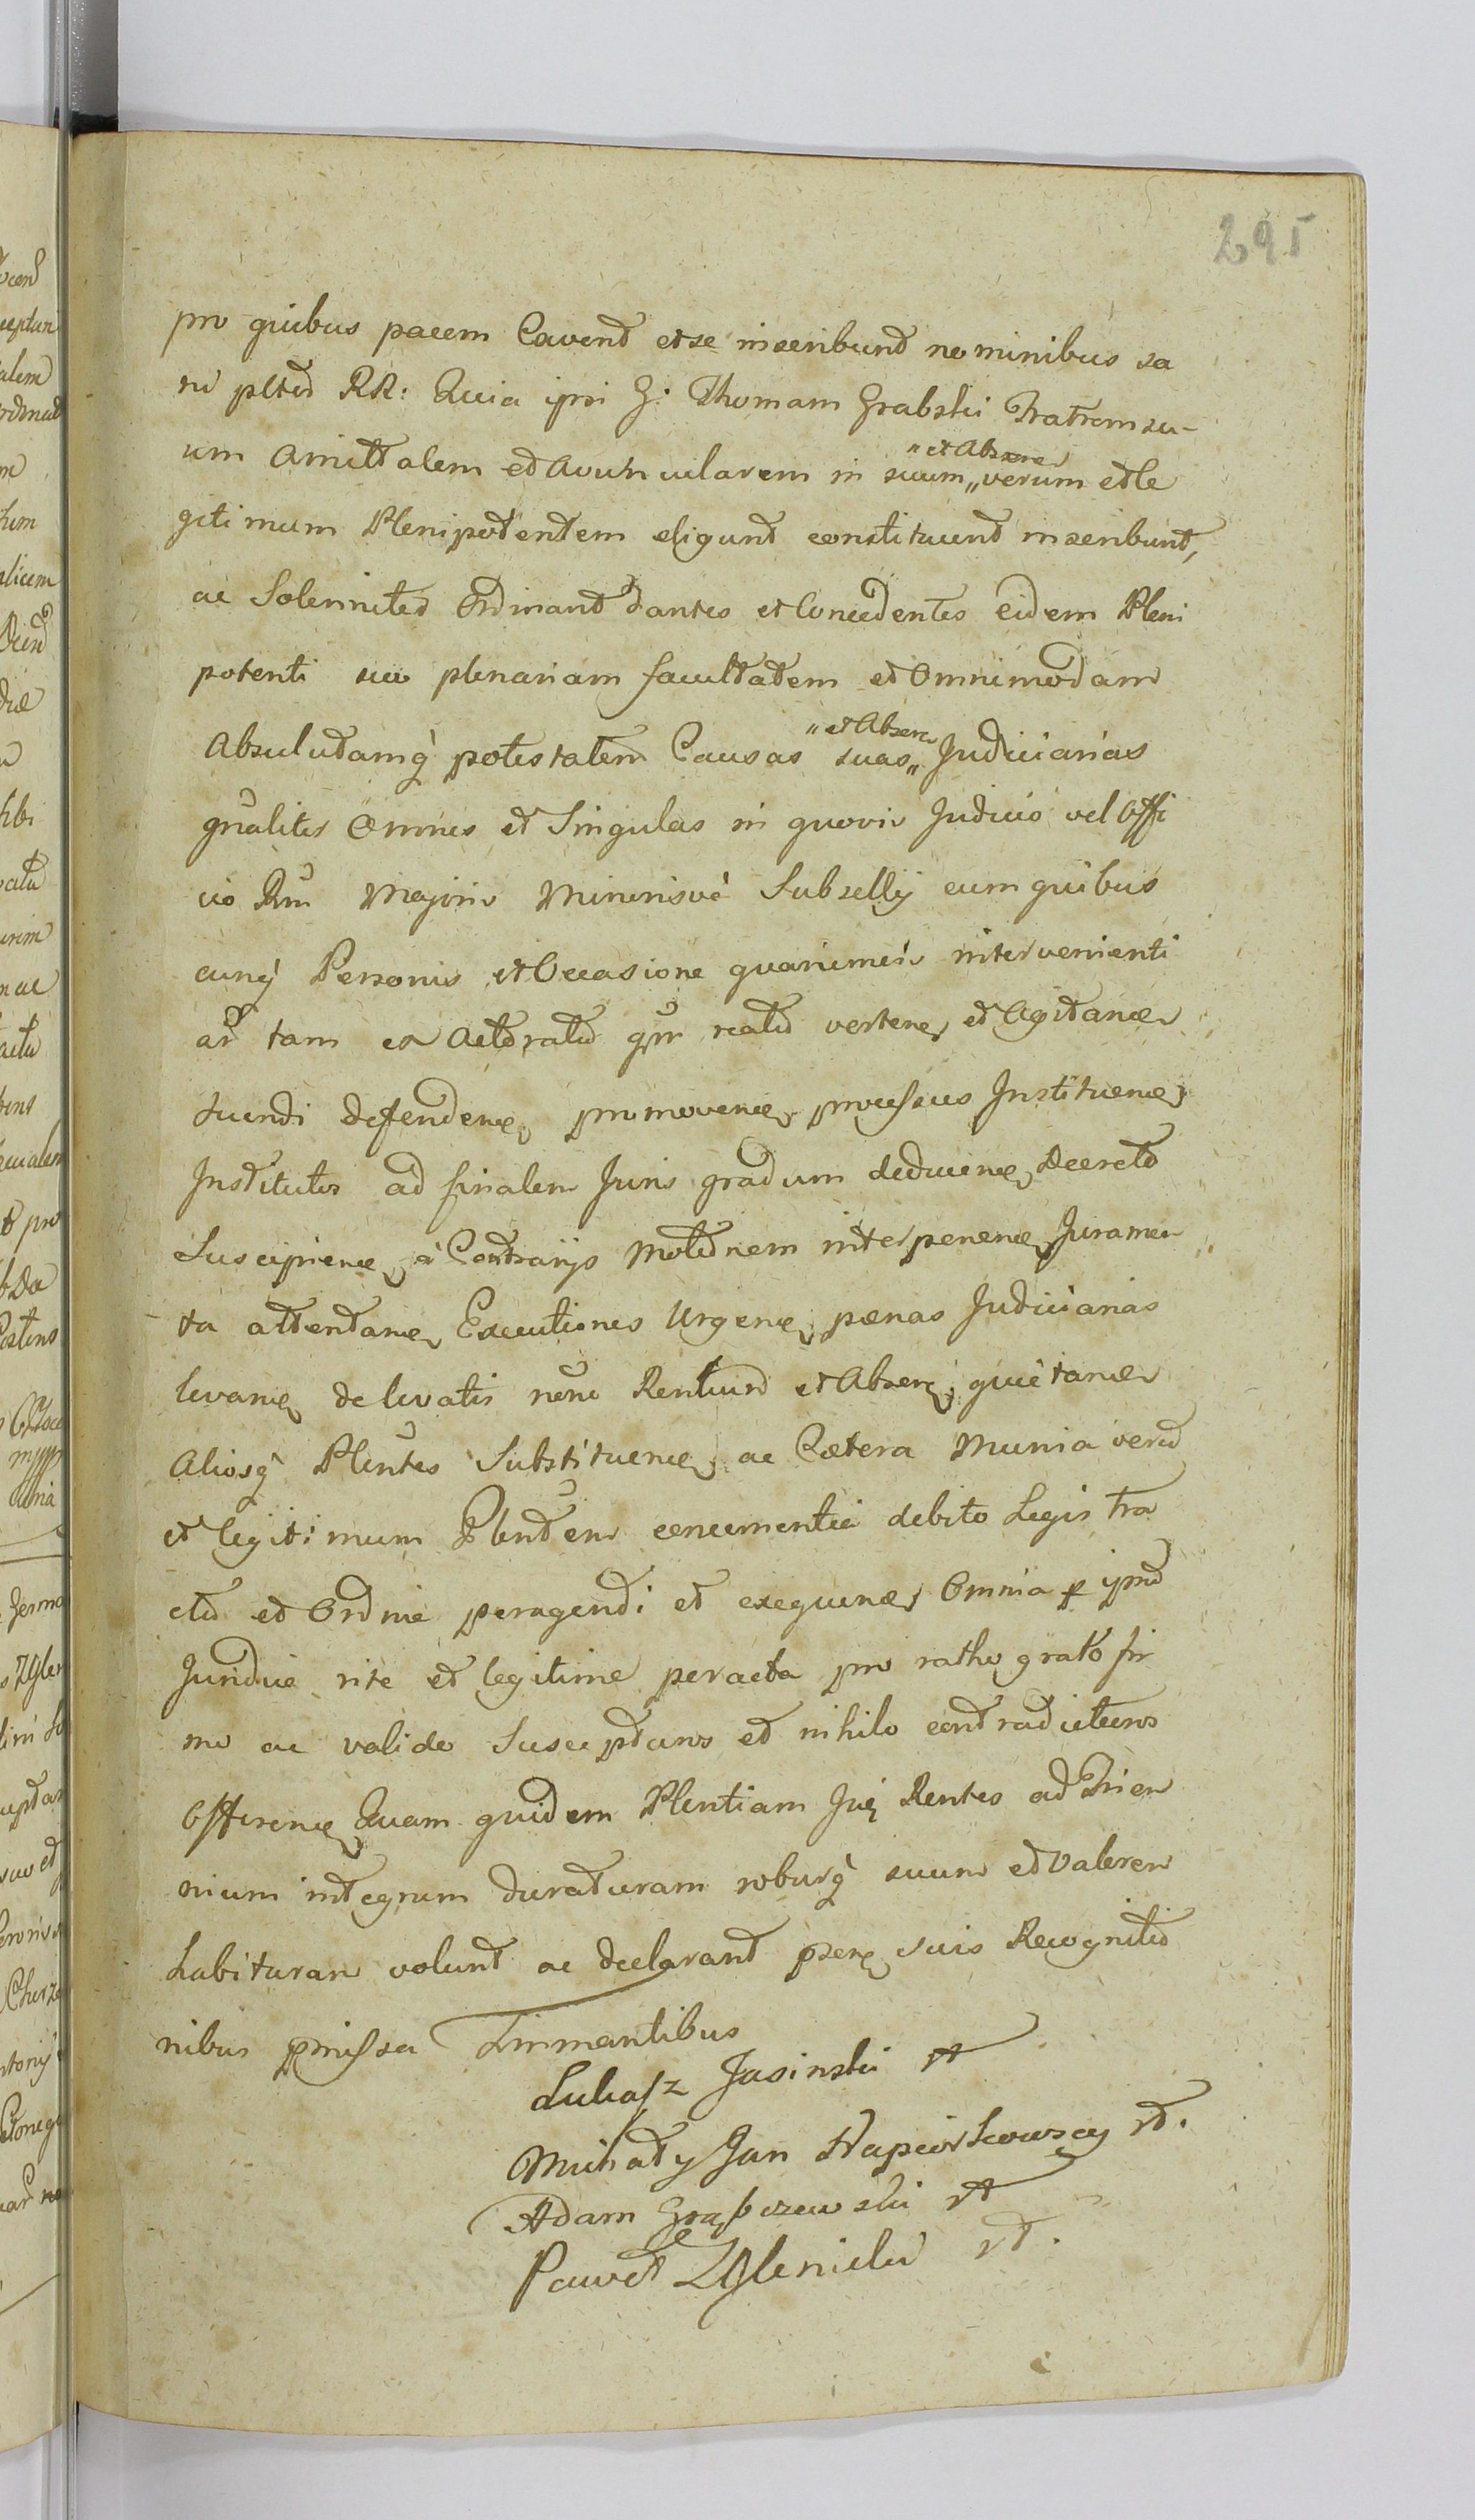 295
pro quibus pacem Cavent et se inscribunt nominibus sa
ni pltter RR: Quia ipsi G: Thomam Grabski Fratrem su-
um Amittalem et Avuncularem in suum „ et Absen „ verum et le
gitimum Plenipotentem eligunt constituunt inscribunt,
ac Solenniter Ordinant dantes et Concedentes eidem Pleni
potenti suo plenariam facultatem et Omnimodam
Absolutamq potestatem Causas suas „ et Absen „ Judiciarias
gnaliter Omnes et Singulas in quovis Judicio vel Offi
cio Rni Majoris Minorisvé Subsellij cum quibus
cunq Personis et Occasione quarumvis intervenienti
ar tam ex Actoratu qm reatu verten et Agitan
tuendi defenden promoven processus Instituen
Institutos ad finalem Juris gradum deducen Decreta
Suscipien á Contrarijs Motionem interponen Juramen
ta attentan Executiones Urgen pænas Judiciarias
levan de levatis noie Rentium et Absen quietan
Aliosq Plentes Substituen ac Cætera Munia verum
et legitimum Plentem concernentia debito Legis tra
ctu et Ordine peragendi et exequen Omnia p ipm
Juridice rite et legitime peracta pro ratho grato fir
mo ac valido Suscepturos et nihilo contradicturos
Offeren Quam quidem Plentiam Jui Rentes ad Trien
nium integrum duraturam roburq suum et Valorem
habituram volunt ac declarant psen suis Recognitio
nibus pmissa firmantibus
Lukasz Jasinski
Michał y Jan Napiorkowscy
Adam Grabczewski
Paweł Zglenicki